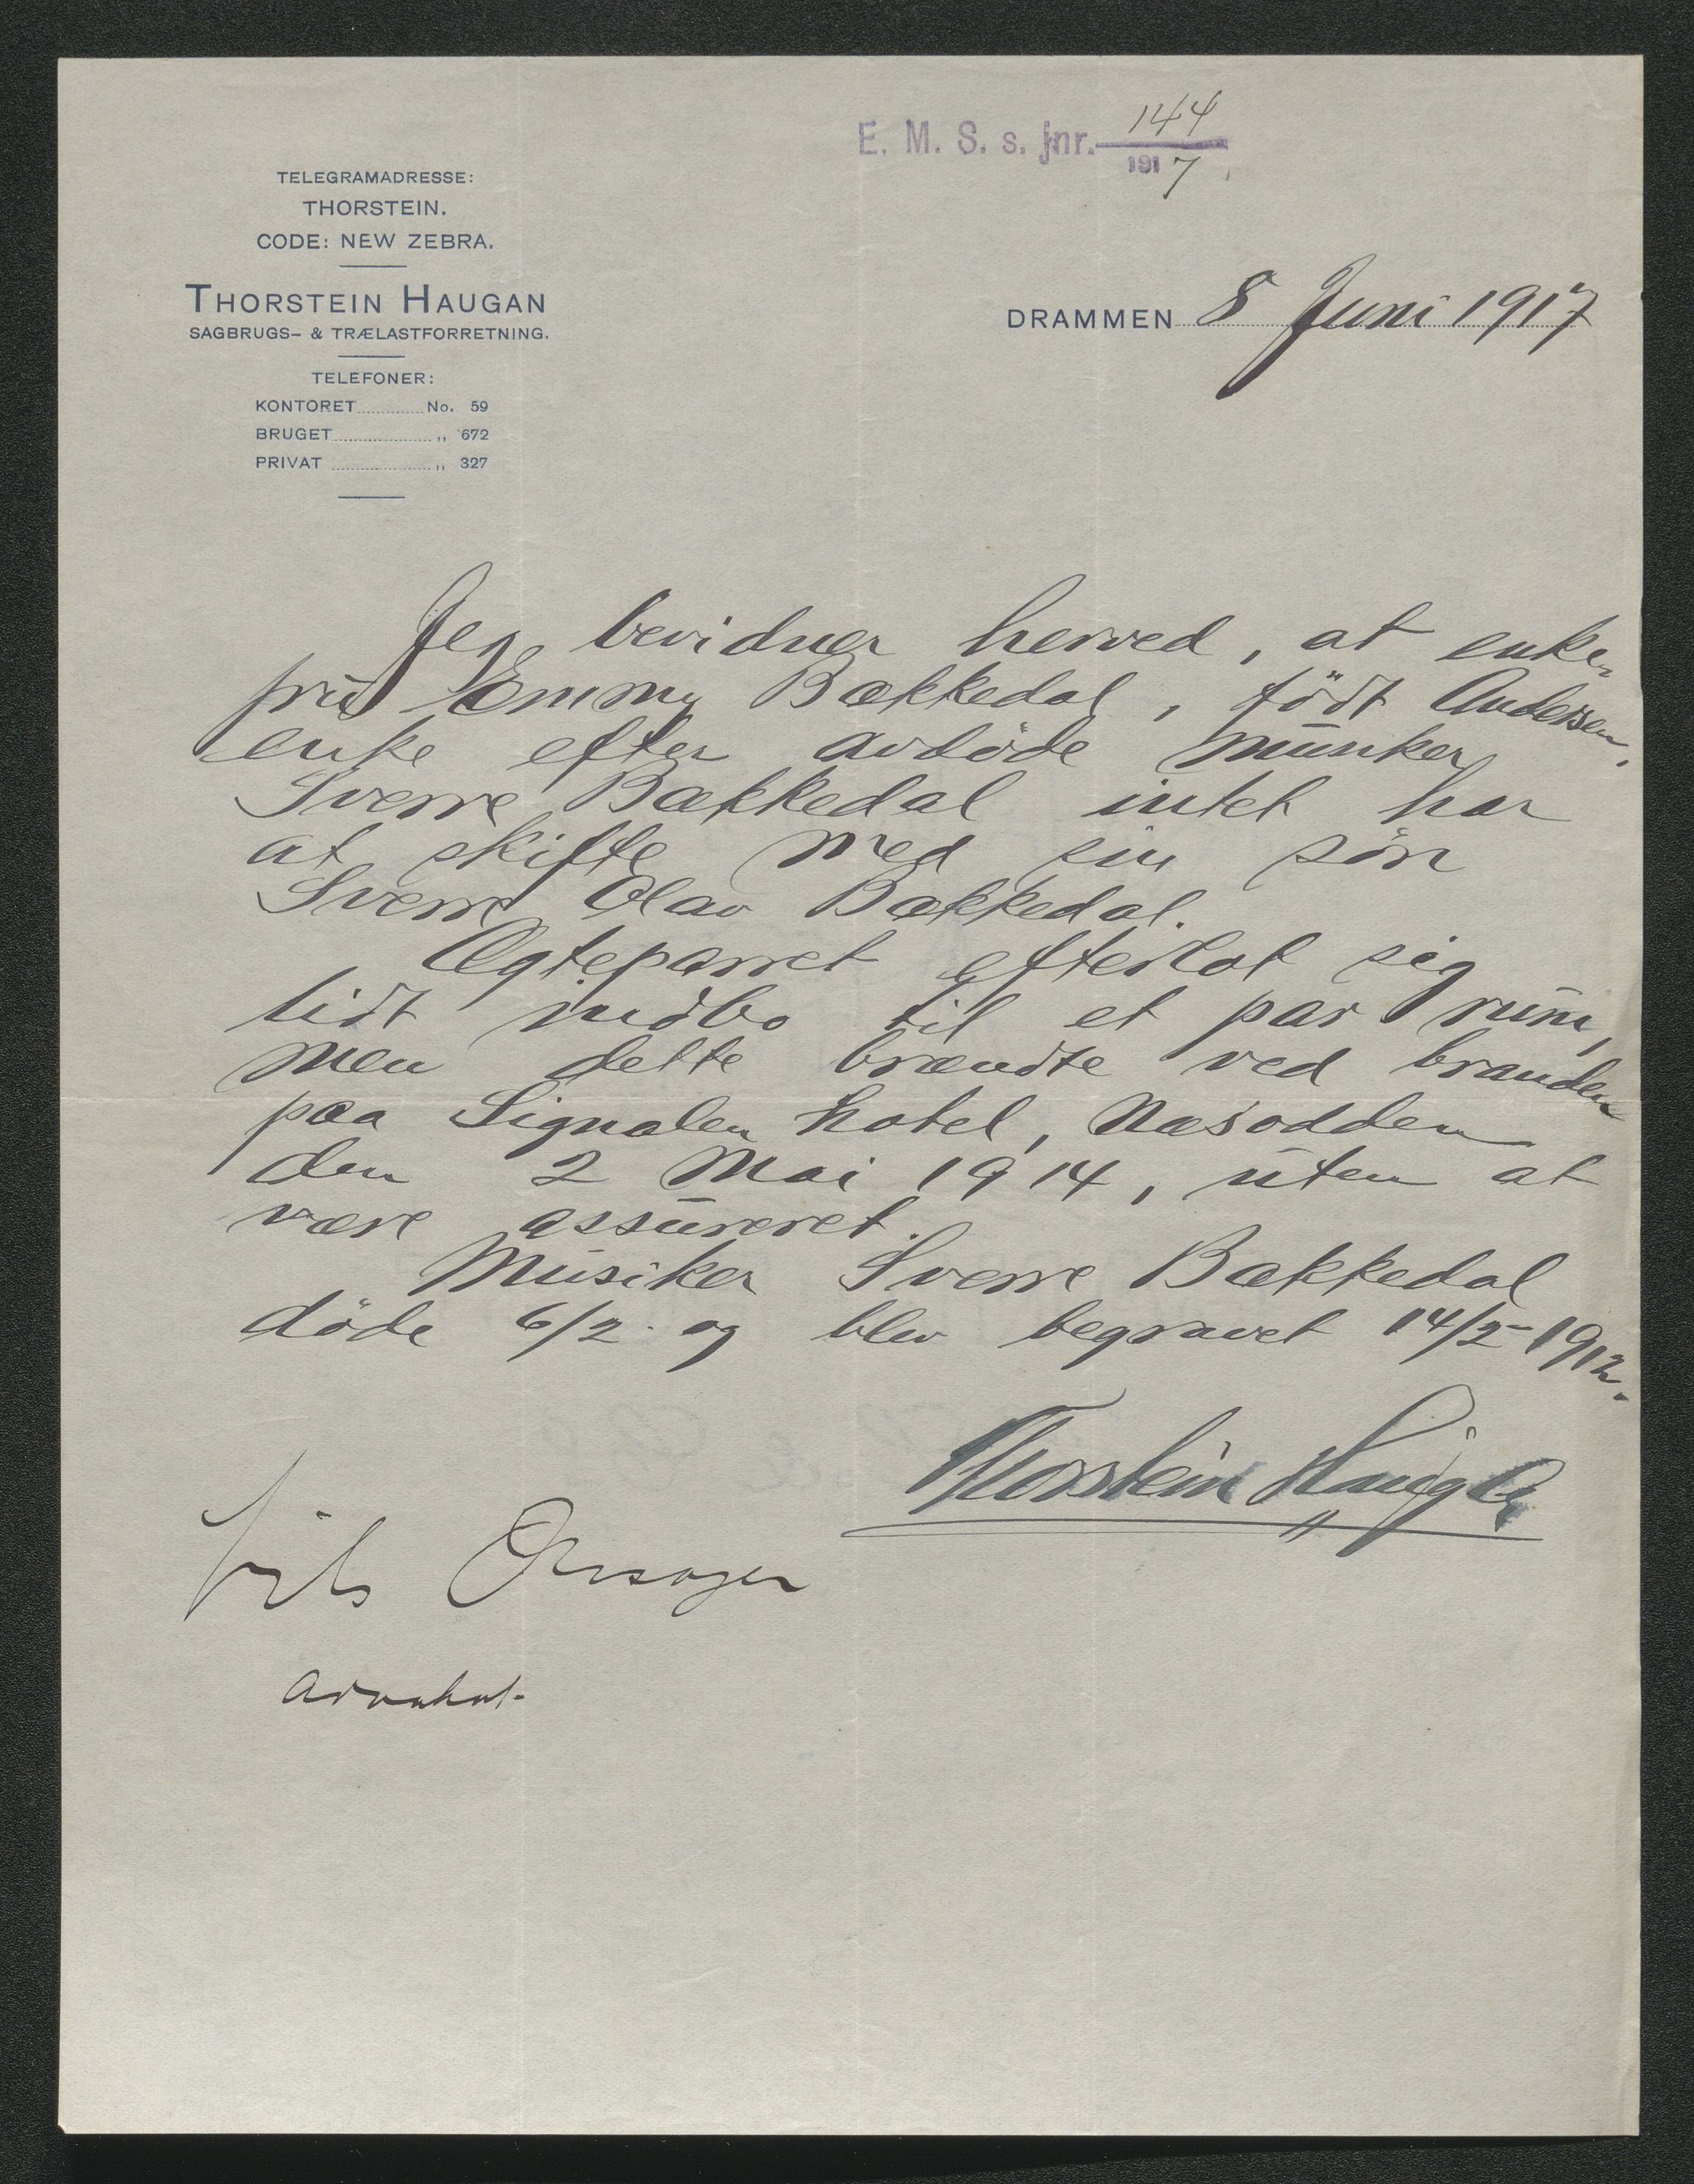 E. M. S. s. jnr. 144
1917
TELEGRAMADRESSE:
THORSTEIN.
CODE: NEW ZEBRA.
THORSTEIN HAUGAN
SAGBRUGS- & TRÆLASTFORRETNING.
TELEFONER:
KONTORET No. 59
BRUGET „ 672
PRIVAT „ 327
DRAMMEN 8 Juni 1917
Jeg bevidner herved, at enke-
fru Emmy Bækkedal, födt Andersen,
enke efter avdöde musiker
Sverre Bækkedal intet har
at skifte med sin sön
Sverre Olav Bækkedal.
Ægteparret efterlot sig
lidt indbo til et par rum,
men dette brændte ved branden
paa Signalen hotel, Næsodden
den 2 Mai 1914, uten at
være assureret.
Musiker Sverre Bækkedal
döde 6/2 og blev begravet 14/2-1912.
Thorstein Haugan
advokat.